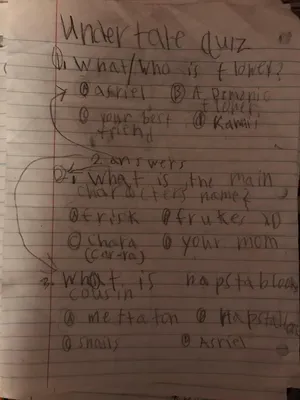 Undertale quiz
1. What/who is flowey?
asriel B A Demonic flower
your best friend
2 answers
2. What is the main
charecters name?
frisk frukes XD
chara your mom
(car-ra)
3. What is napstabloo
cousin
mettaton napstabl
snails Asriel